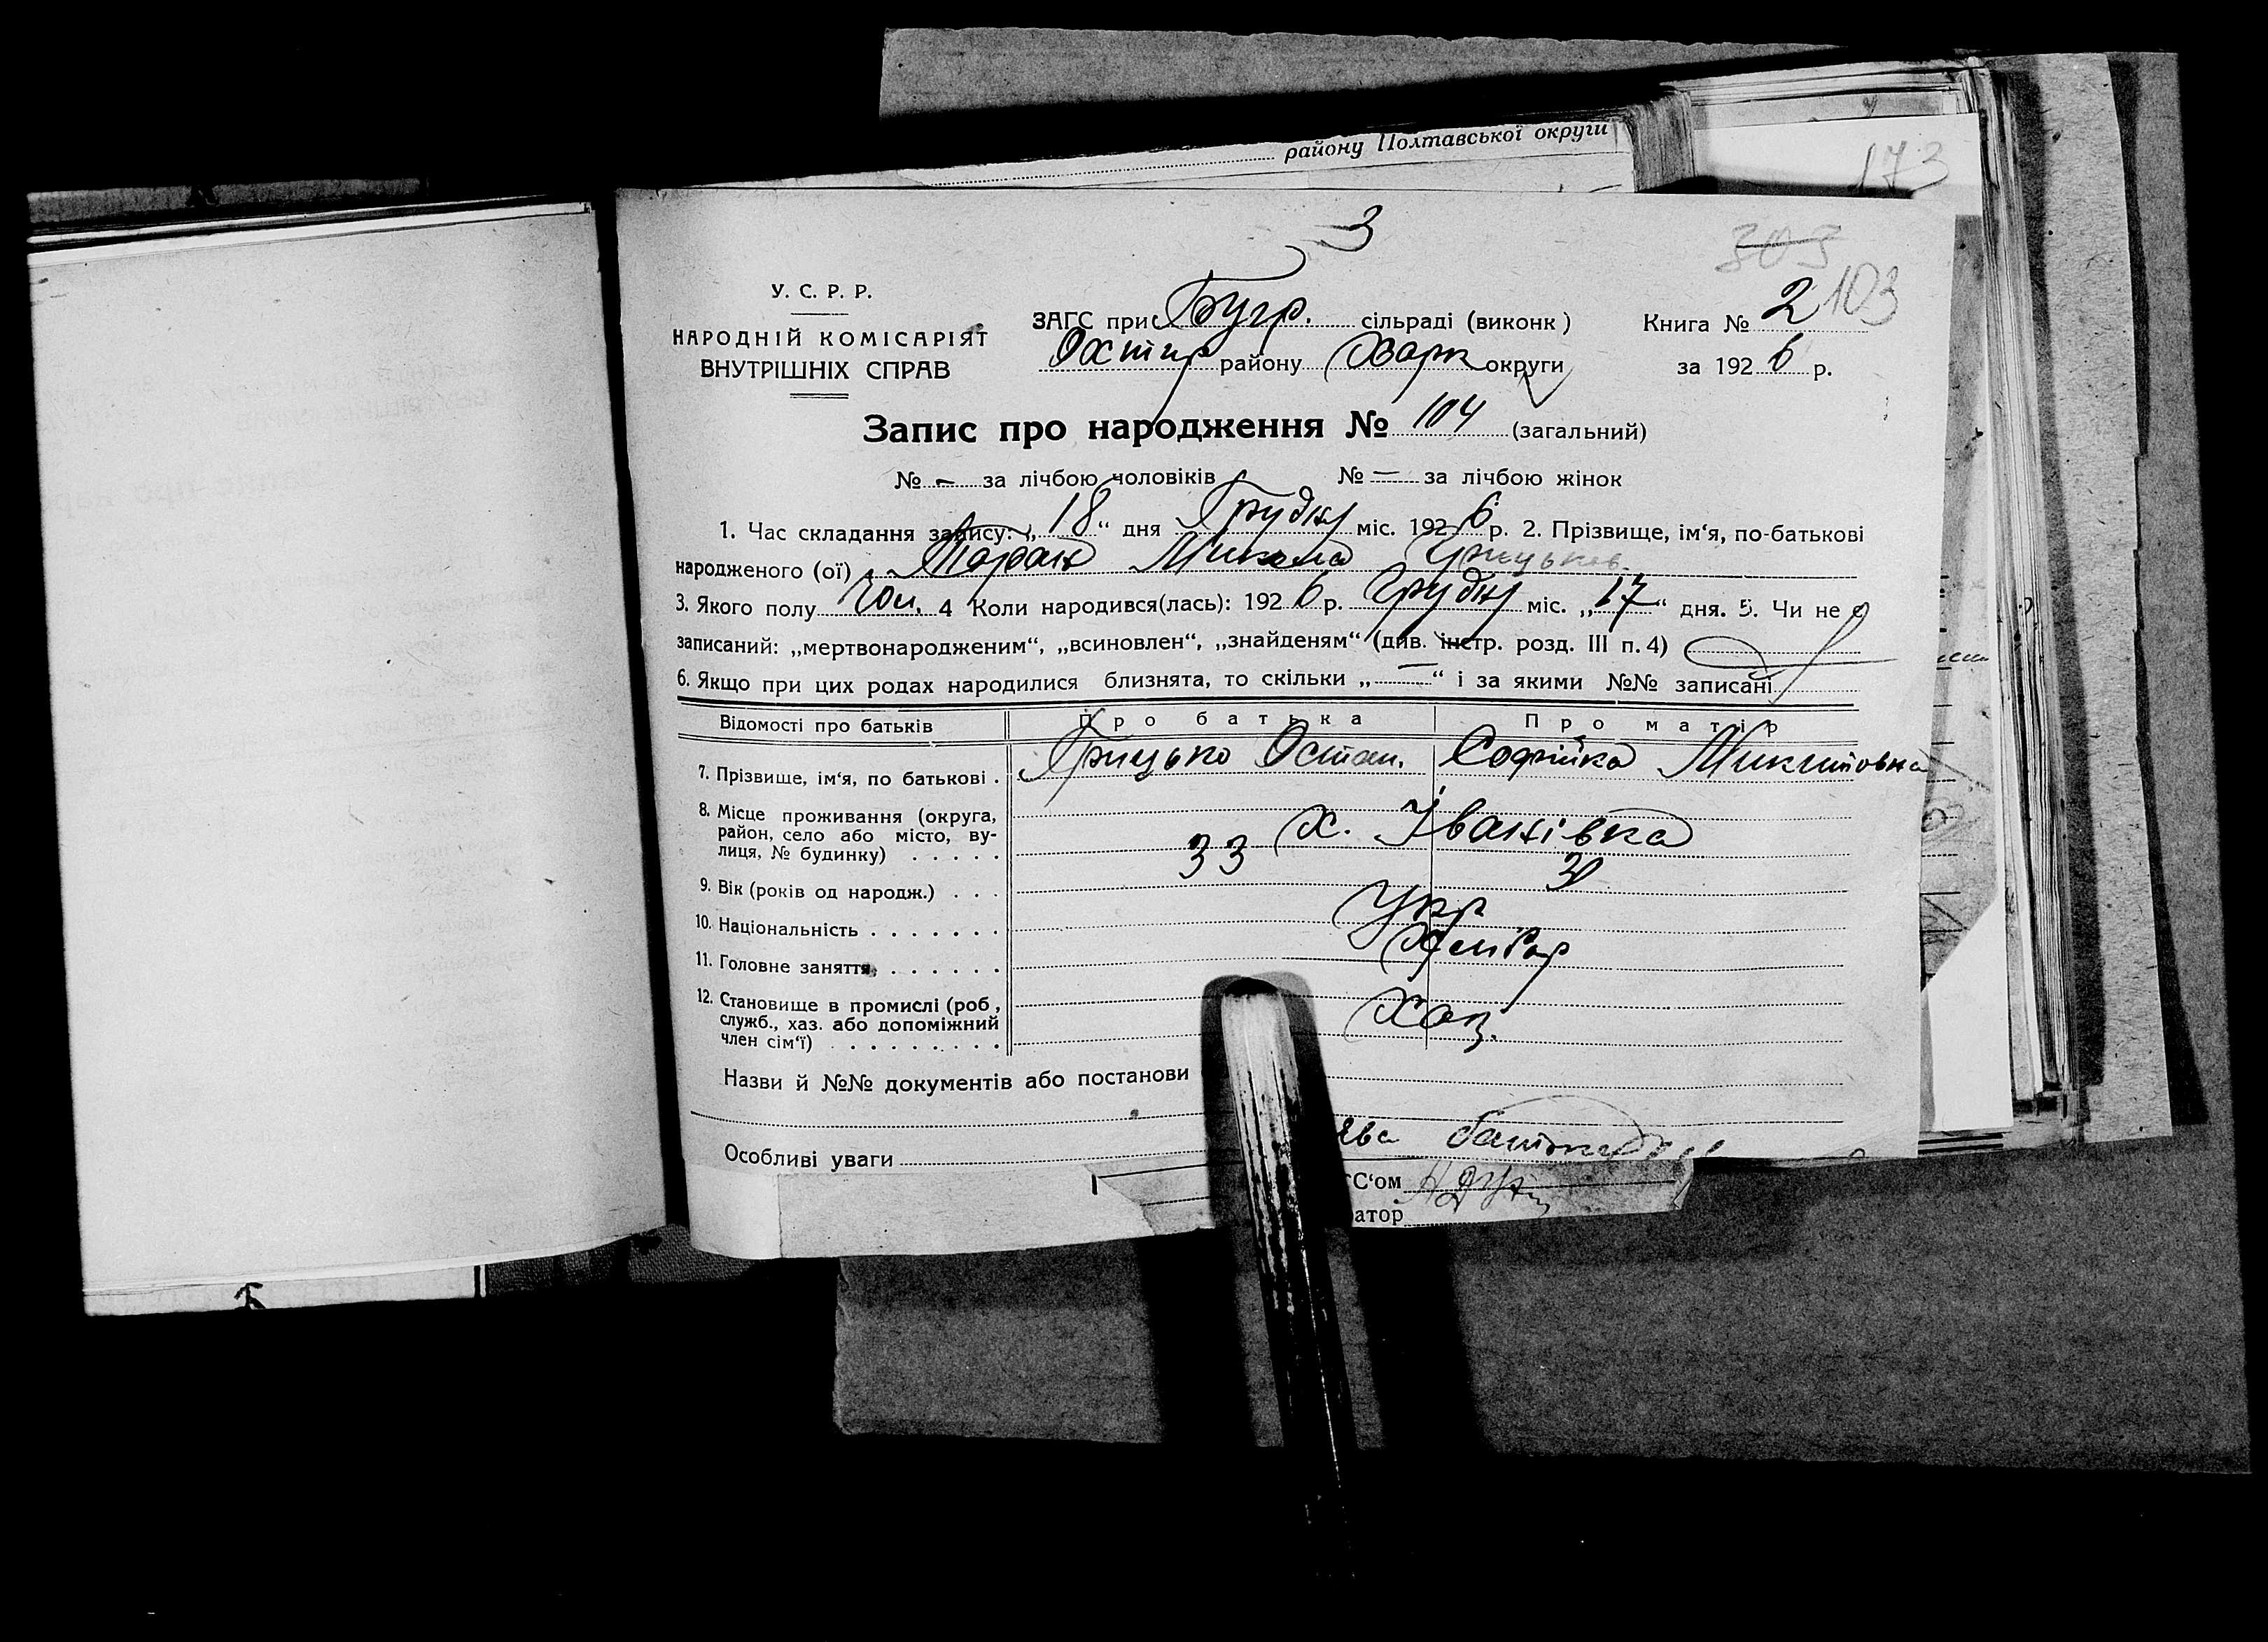 району Полтавської округи
173
3
303
103
У. С. Р. Р.
НАРОДНІЙ КОМІСАРІЯТ
ВНУТРІШНІХ СПРАВ
ЗАГС при Бугр. сільраді (виконк)
Охтир району Харк округи
Книга № 2
за 1926 р.
Запис про народження № 104 (загальний)
№ - за лічбою чоловіків № — за лічбою жінок
1. Час складання запису: „18“ дня Грудня міс. 1926 р. 2. Прізвище, ім‘я, по-батькові
народженого (ої) Таран Микола Грицьков.
3. Якого полу Чол. 4 Коли народився(лась): 1926 р. Грудня міс. „17“ дня. 5. Чи не є
записаний: „мертвонародженим“, „всиновлен“, „знайденям“ (див. інстр. розд. III п. 4)
6. Якщо при цих родах народилися близнята, то скільки „—“ і за якими №№ записані
Відомості про батьків Про батька Про матір
7. Прізвище, ім‘я, по батькові . Грицько Остап. Софійка Микитовна
8. Місце проживання (округа,
район, село або місто, ву-
лиця, № будинку) . . . . . х. Іванівка
9. Вік (років од народж.) . . . 33 30
10. Національність . . . . . . . Укр
11. Головне заняття . . . . . . Хлібор
12. Становище в промислі (роб,
служб., хаз. або допоміжний
член сім‘ї) . . . . . . . . . Хаз.
Назви й №№ документів або постанови
ява батька
Особливі уваги
С‘ом
атор